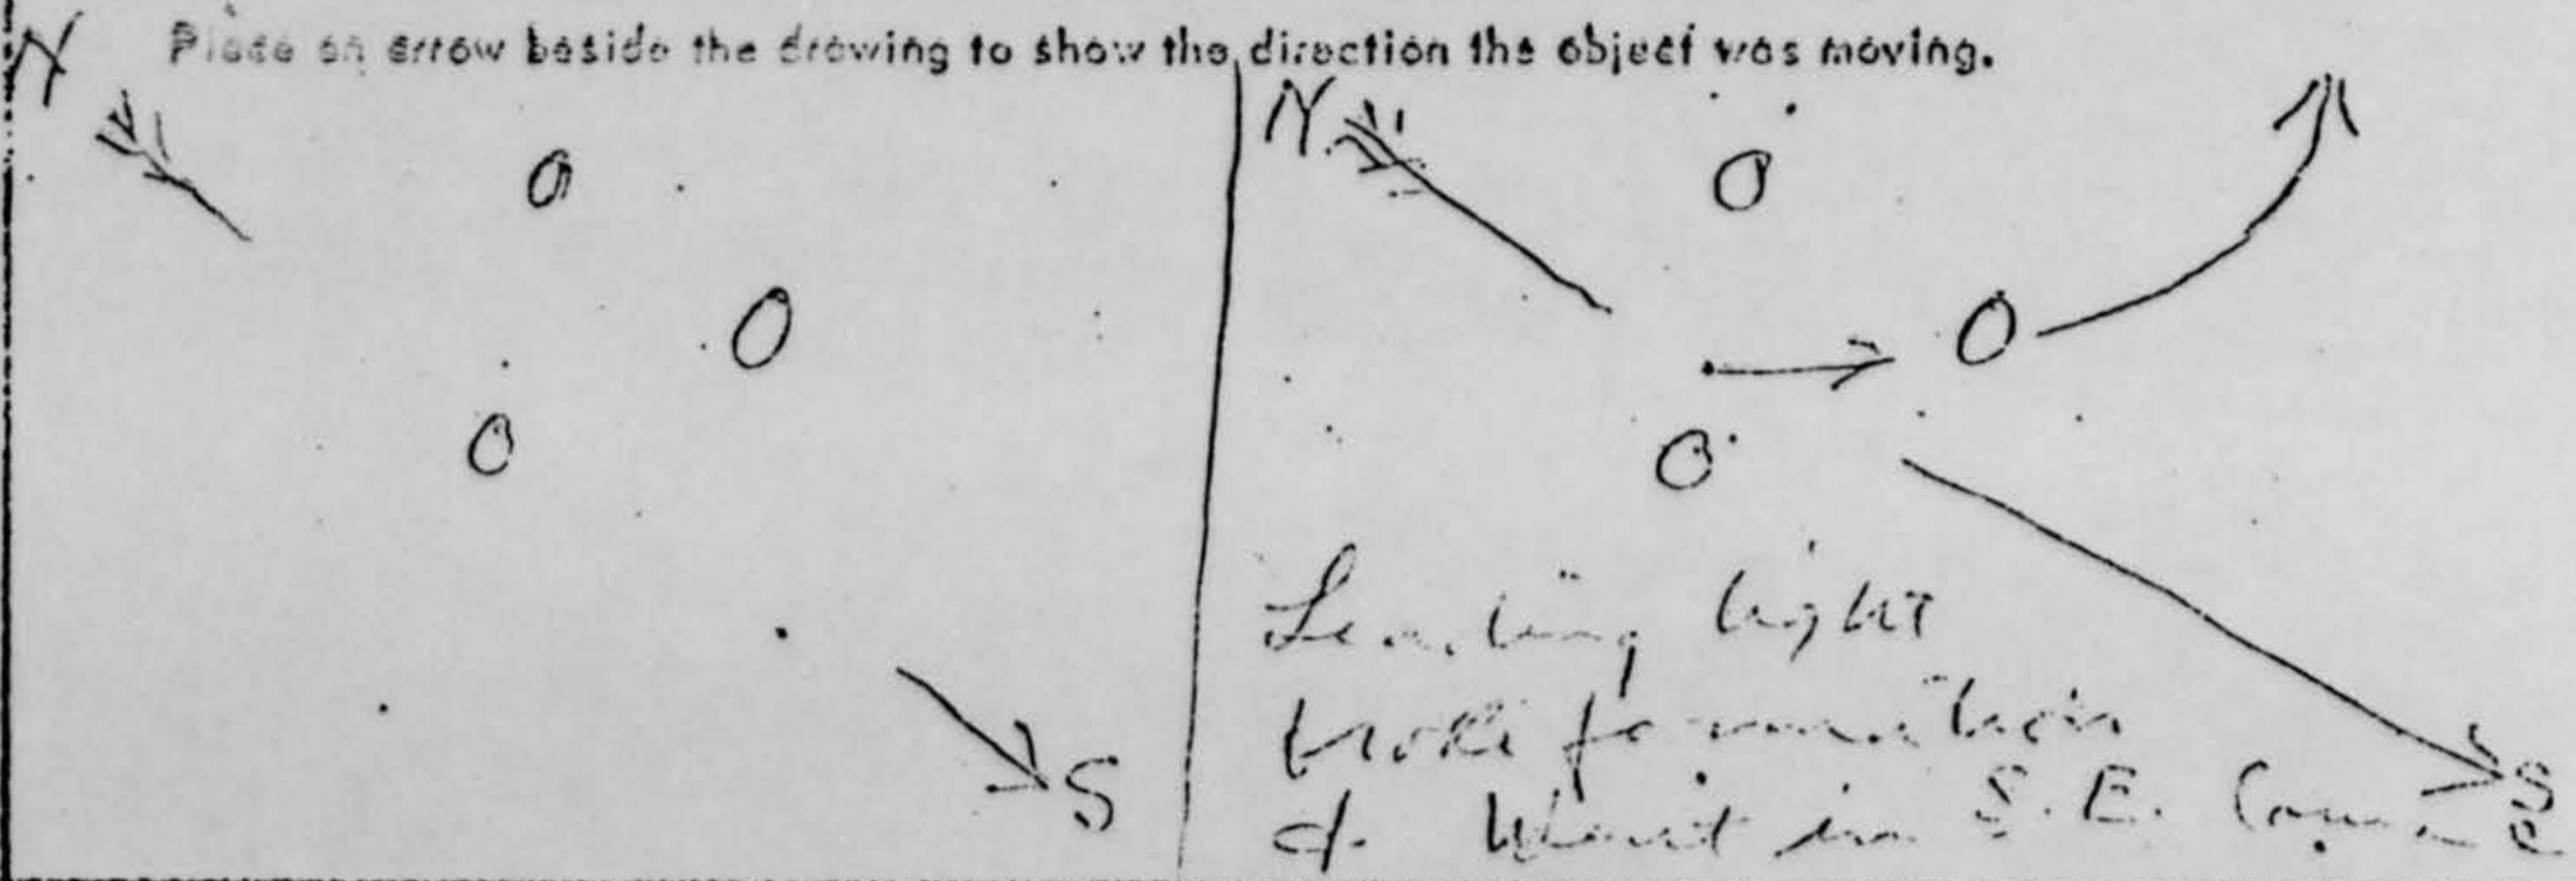 Place an arrow beside the drawing to show the direction the object was moving.
N
S
N
S
Leading light
broke formation
& Went in S.E. Course